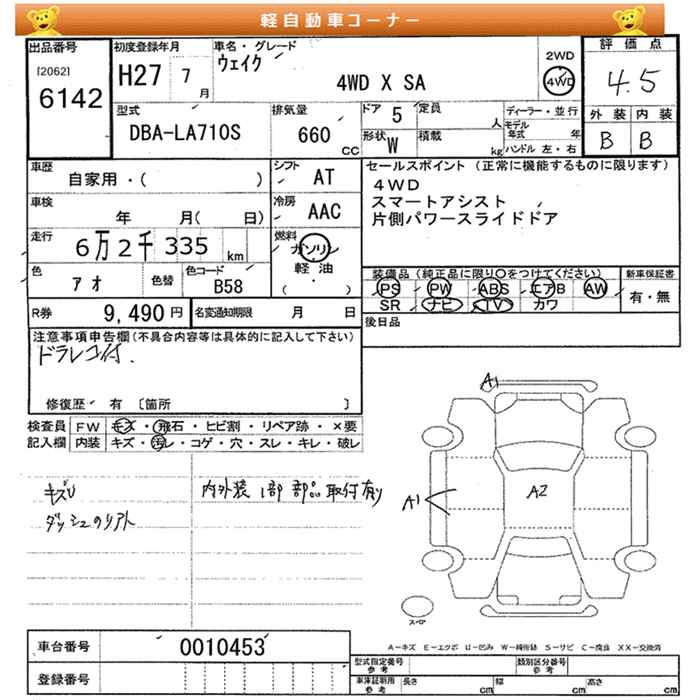 軽自動車コーナー
出品番号 初度登録年月 車名・グレード 評価点
[2062] ウェイク 2WD
6142 H27 7月 4WD X SA 4WD 4.5
型式 排気量 ドア 5 定員 人 ディーラー・並行 外装 内装
DBA-LA710S 660 CC 形状 W 積載 kg モデル年式 年 B B
ハンドル 左・右
車歴 シフト セールスポイント(正常に機能するものに限ります)
自家用・( ) AT 4WD
車検 冷房 スマートアシスト
年 月( 日) AAC 片側パワースライドドア
走行 6万2千335 km 燃料 ガソリン
軽油
( ・ )
色 アオ 色替 色コード B58 装備品(純正品に限り○をつけてください) 新車保証書
PS PW ABS エアB AW 有・無
R券 9,490円 名変通知期限 月 日 SR ナビ TV カワ
注意事項申告欄(不具合内容等は具体的に記入して下さい) 後日品
ドラレコ付.
修復歴・有 [箇所 ]
検査員 FW キズ・飛石・ヒビ割・リペア跡・×要
記入欄 内装 キズ・汚レ・コゲ・穴・スレ・キレ・破レ
A1
キズU 内外装1部部品取付有り A1 A2
ダッシュのリアト
スペア
車台番号 0010453 A－キズ E－エクボ U－凹み W－補修跡 S－サビ C－腐食 XX－交換済
登録番号 型式指定番号 参考 類別区分番号 参考
車庫証明用 参考 長さ cm 幅 cm 高さ cm